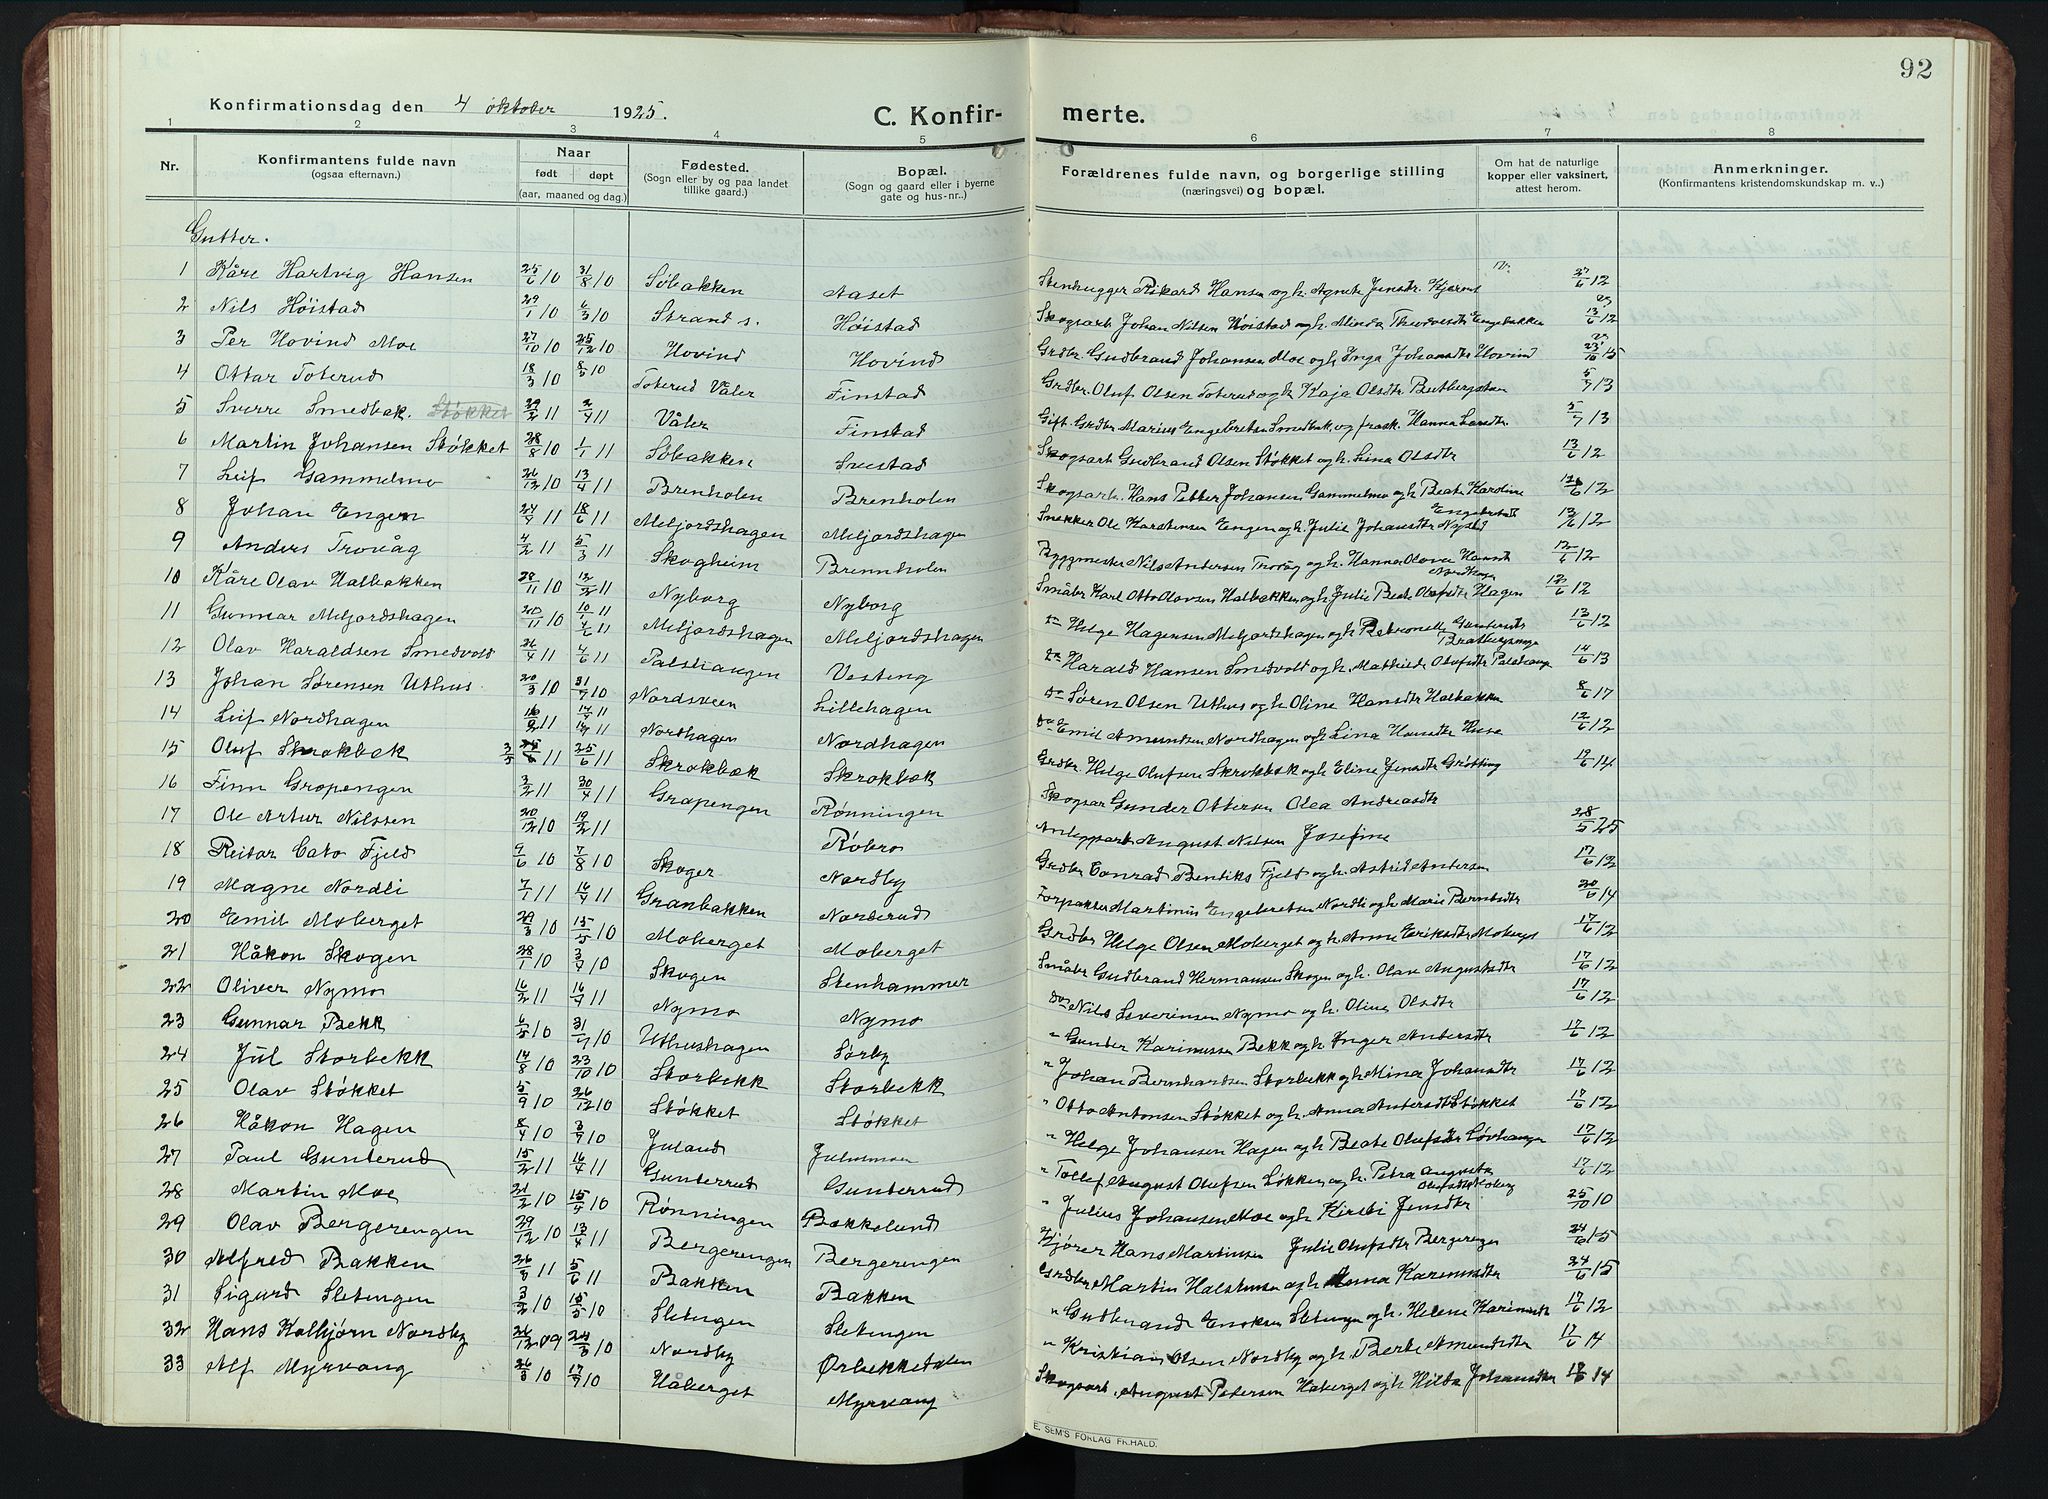 92
Konfirmationsdag den 4 oktober 1925.
C. Konfir- merte.
1 2 3 4 5 6 7 8
Nr. Konfirmantens fulde navn (ogsaa efternavn.) Naar født døpt (aar, maaned og dag.) Fødested. (Sogn eller by og paa landet tillike gaard.) Bopæl. (Sogn og gaard eller i byerne gate og hus-nr..) Forældrenes fulde navn, og borgerlige stilling (næringsvei) og bopæl. Om hat de naturlige kopper eller vaksinert, attest herom. Anmerkninger. (Konfirmantens kristendomskundskap m. v..)
Gutter.
1 Kåre Hartvig Hansen 25/6 10 31/8 10 Søbakken Aaset Stenhugger Rikard Hansen og h. Agnete Jensdtr 27/6 12
2 Nils Høistad 29/1 10 6/3 10 Strand s. Høistad Skogsarb Johan Nilsen Høistad og h. Minda Engebakken 13/6 12
3 Per Hovind Moe 27/10 10 25/12 10 Hovind Hovind Grdbr. Gudbrand Johansen Moe og h. Inga Johansdtr Hovind 23/10 15
4 Ottar Toterud 18/3 10 8/5 10 Toterud Våler Finstad Grdbr. Oluf Olsen Toterud og h. Kaja Olsdtr 5/7 13
5 Sverre Smedbak. Støkket 29/2 11 2/4 11 Våler Finstad Gift. Grdbr Marius Engebretsen Smedbak og frask. Hanna 5/7 13
6 Martin Johansen Støkket 28/8 10 1/1 11 Søbakken Svestad Skogsarb Gudbrand Olsen Støkket og h. Lina Olsdtr 13/6 12
7 Leif Gammelmo 26/12 10 13/4 11 Brenholen Brenholen Skogsarb. Hans Petter Johansen Gammelmo og h Beate Karoline Engebretsdt 12/6 12
8 Johan Engen 24/4 11 18/6 11 Meljordshagen Meljordshagen Snekker Ole Karstensen Engen og h. Julie Johansdtr Nysted 13/6 12
9 Anders Trovåg 4/2 11 5/3 11 Skogheim Brennholen Byggmester Nils Andersen Trovåg og h. Hanna Olava Hansdt Nordhagen 12/6 12
10 Kåre Olav Halbakken 28/11 10 12/2 11 Nyborg Nyborg Småbr Karl Otto Olavsen Halbakken og h. Julie Beate Olofsdtr Hagen 12/6 12
11 Gunnar Meljordshagen 20/11 10 10/1 11 Meljordshagen Meljordshagen do Helge Hagensen Meljordshagen og h Petronelle Gundersdtr 13/6 12
12 Olav Haraldsen Smedvold 26/4 11 4/6 11 Palshaugen Vesteng do Harald Hansen Smedvolt og h. Mathilde Olufsdtr 14/6 13
13 Johan Sørensen Uthus 20/3 10 31/7 10 Nordsveen Lillehagen do Søren Olsen Uthus og h Oline Hansdtr Halbakken 8/6 17
14 Leif Nordhagen 10/2 11 14/4 11 Nordhagen Nordhagen do Emil Amundsen Nordhagen og h Lina Hansdtr Huse 12/6 12
15 Oluf Skrokbek 3/5 11 25/6 11 Skrokbæk Skrokbæk Grdbr. Helge Olufsen Skrokbæk og h Eline Jensdtr Grøtting 19/6 14
16 Finn Gropengen 3/2 11 30/4 11 Gropengen Rønningen Skogsar Gunder Ottersen Olea Andreasdtr
17 Ole Artur Nilssen 20/12 10 19/2 11 Røbro Anleggsarb August Nilsen Josefine 28/5 25
18 Reitar Cato Fjeld 9/6 10 7/8 10 Skoger Nordby Grdbr Conrad Bendiks Fjeld og h. Astrid Andersen 17/6 12
19 Magne Nordli 7/1 11 16/4 11 Granbakken Norderud Forpakter Martinius Engebretsen Nordli og h Marie Berntsdtr 20/6 14
20 Emil Moberget 29/3 10 15/5 10 Moberget Moberget Grdbr Helge Olsen Moberget og h. Anne Eriksdtr Moberget 17/6 12
21 Håkon Skogen 28/1 10 3/4 10 Skogen Stenhammer Småbr Gudbrand Hermansen Skogen og h. Olav Augustsdtr 17/6 12
22 Oliver Nymo 16/2 11 16/4 11 Nymo Nymo do Nils Severinsen Nymo og h. Oline Olsdtr 17/6 12
23 Gunnar Bekk 6/5 10 31/7 10 Uthushagen Sørby " Gunder Karinussen Bekk og h. Inger Andersdtr 17/6 12
24 Jul Storbekk 14/8 10 23/10 10 Storbekk Storbekk " Johan Bernhardsen Storbekk og h Mina Johansdtr 17/6 12
25 Olav Støkket 5/9 10 26/12 10 Støkket Støkket " Otto Antonsen Støkket og h. Anna Andersdtr Støkket 17/6 12
26 Håkon Hagen 8/4 10 3/7 10 Juland Julumoen " Helge Johansen Hagen og h Beate Olufsdtr Løvhaugen 17/6 12
27 Paul Gunderud 15/2 11 16/4 11 Gunderrud Gunderrud " Tollef August Olufsen Løkken og h. Petra Augusta Olufsdtr 17/6 12
28 Martin Moe 21/2 10 15/4 10 Rønningen Bakkelund " Julius Johansen Moe og h Kirsti Jensdtr 25/10 10
29 Olav Bergerengen 29/12 10 13/4 11 Bergerengen Bergerengen Kjører Hans Martinsen Julie Olufsdtr Bergerengen 24/6 15
30 Alfred Bakken 26/3 11 5/6 11 Bakken Bakken Grdbr Martin Halstensen og h Anna Karinusdtr 24/6 15
31 Sigurd Sletengen 3/2 10 15/5 10 Sletengen Sletengen " Gudbrand Enoksen Sletengen og h. Helene Karinusdt 17/6 12
32 Hans Kolbjørn Nordby 26/12 09 24/3 10 Nordby Ørbekkedalen " Kristian Olsen Nordby og h. Berte Amundsdtr 17/6 14
33 Alf Myrvang 26/3 10 17/7 10 Håberget Myrvang Skogsarb. August Pedersen Haberget og h Hilda Johansdtr 18/6 14
E. SEM'S FORLAG FR.HALD.